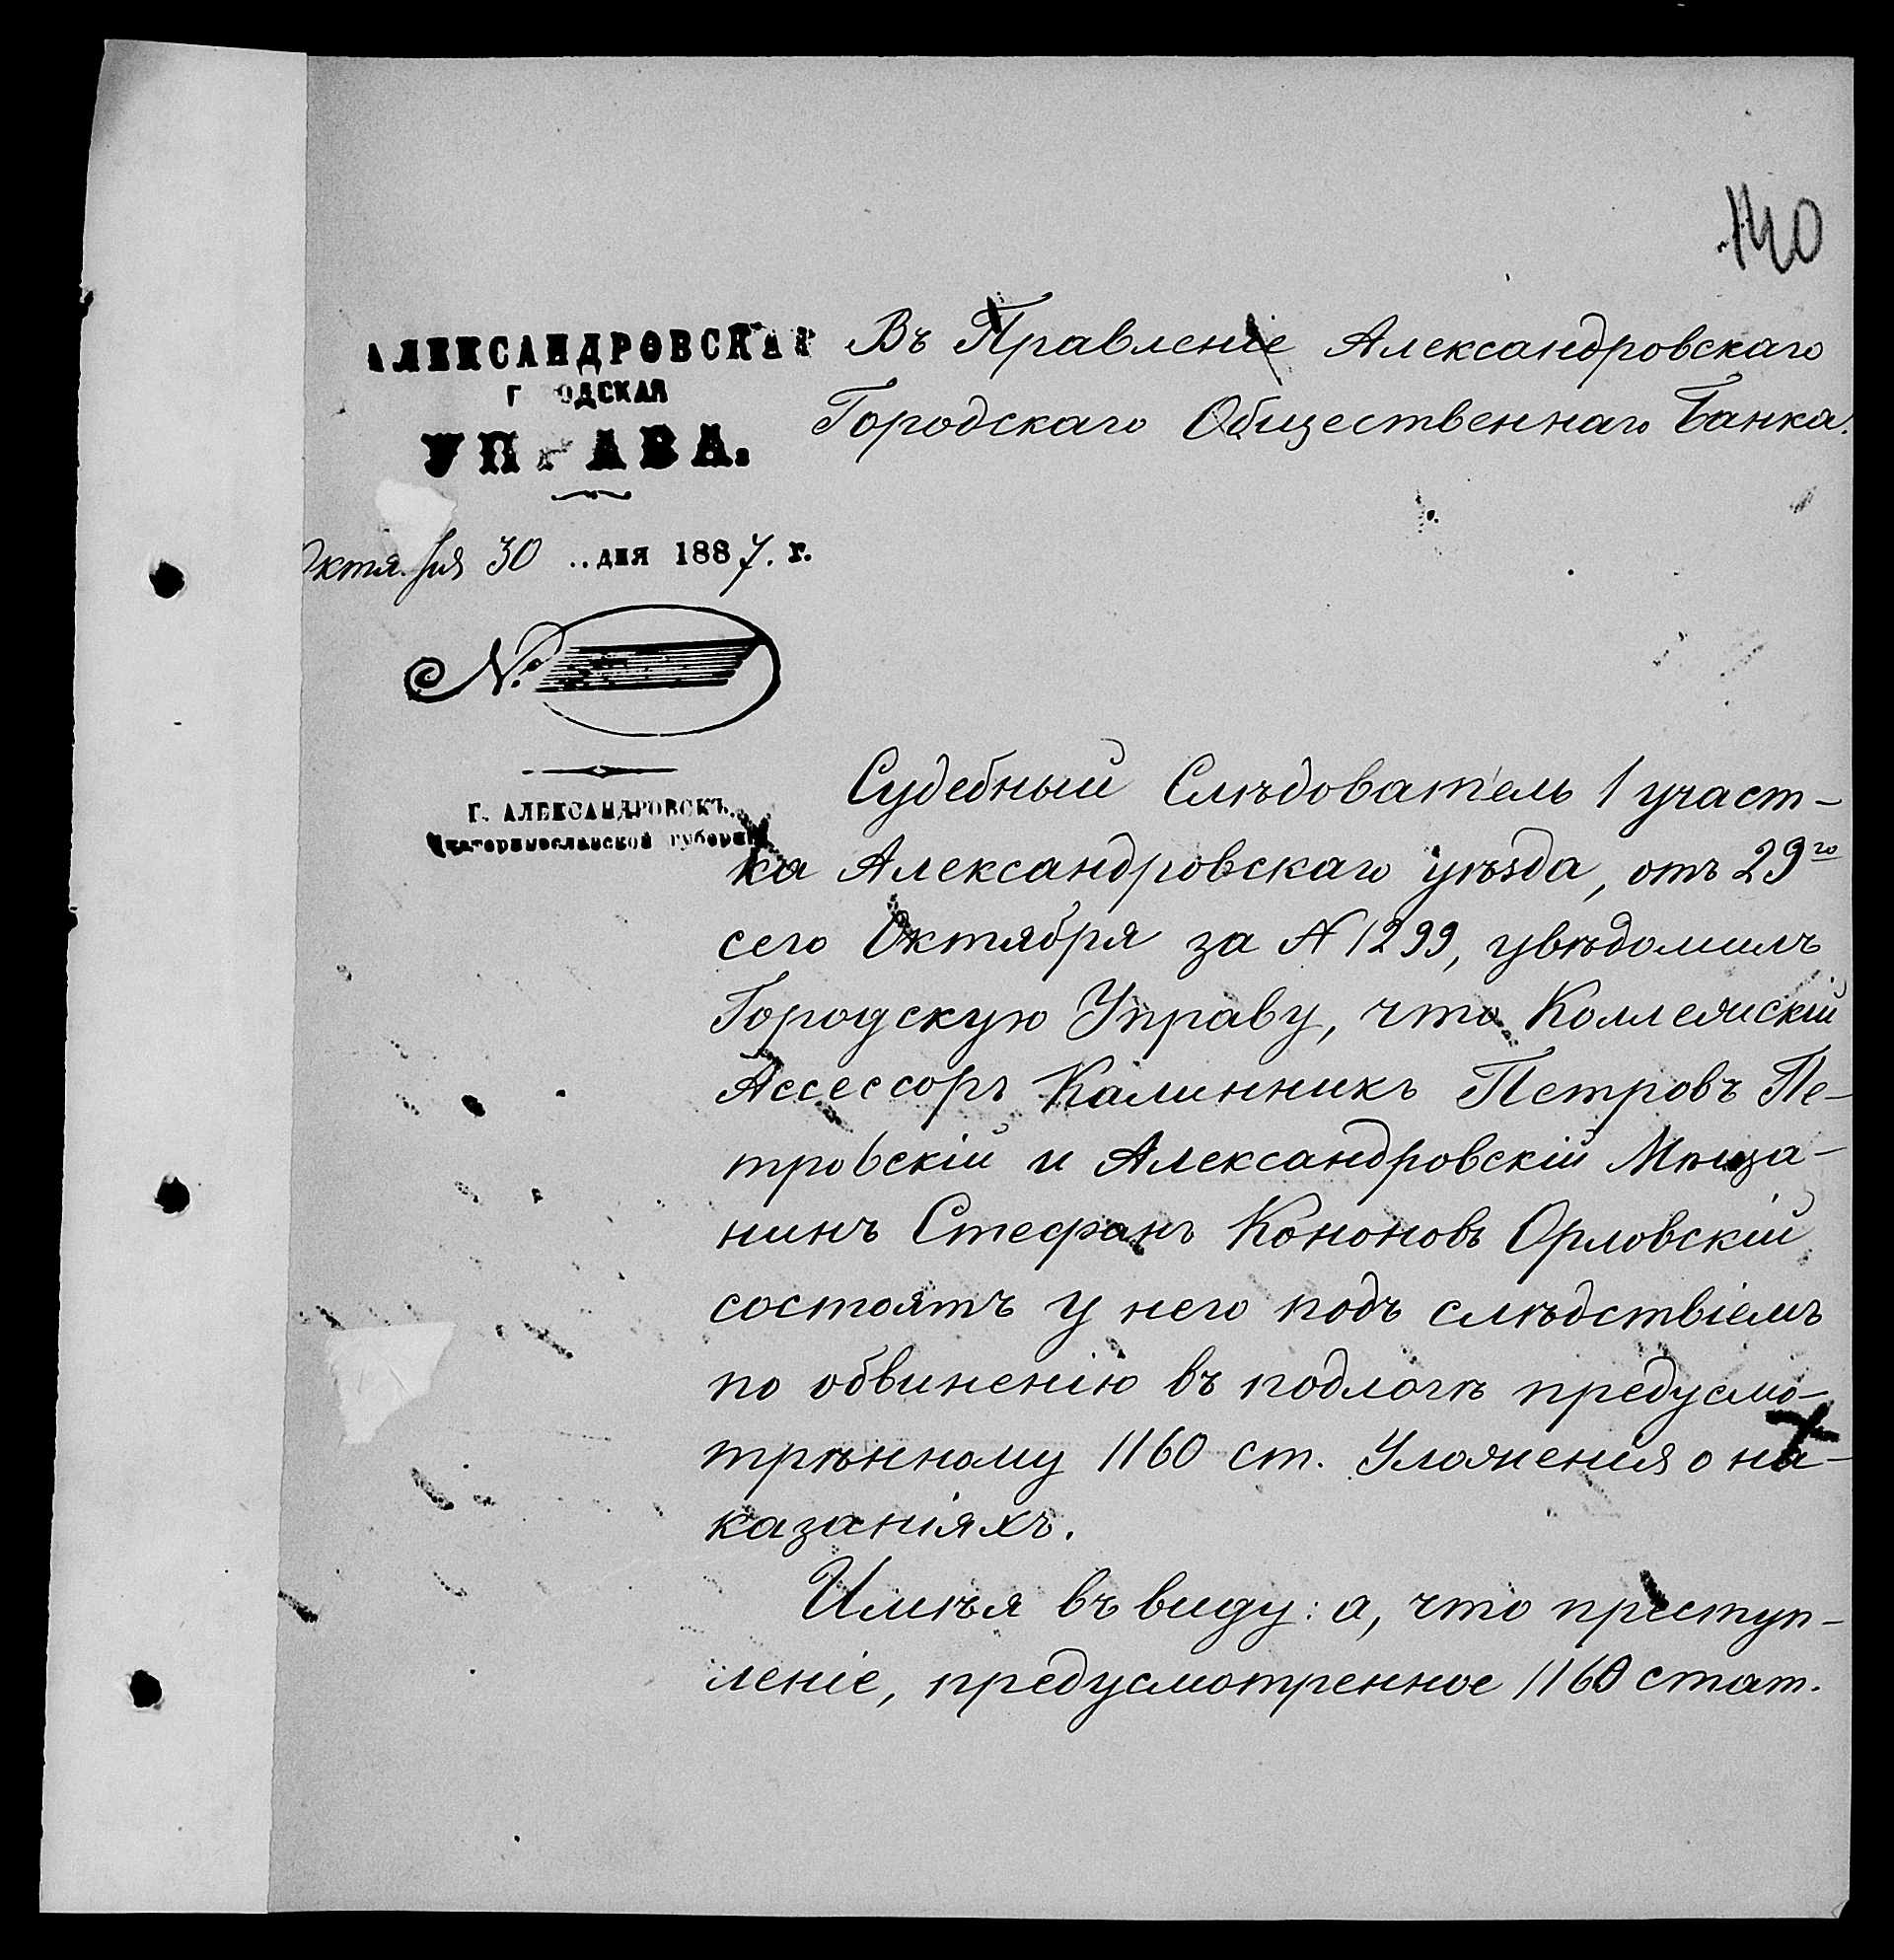 140
АЛЕКСАНДРОВСКАЯ
ГОРОДСКАЯ
УПРАВА.
Октября 30 дня 1887. г.
№.
Г. АЛЕКСАНДРОВСКЪ.
Екатеринославской губерніи
Въ Правленіе Александровскаго
Городскаго Общественнаго Банка.
Судебный Слѣдователь 1 участ-
ка Александровскаго уѣзда, отъ 29го
сего Октября за № 1299, увѣдомилъ
Городскую Управу, что Коллежскій
Ассессоръ Калинникъ Петровъ Пе-
тровскій и Александровскій Мѣща-
нинъ Стефанъ Кононовъ Орловскій
состоятъ у него подъ слѣдствіемъ
по обвиненію въ подлогѣ предусмо-
трѣнному 1160 ст. Уложенія о на-
казаніяхъ.
Имѣя въ виду: а, что преступ-
леніе, предусмотренное 1160 стат.